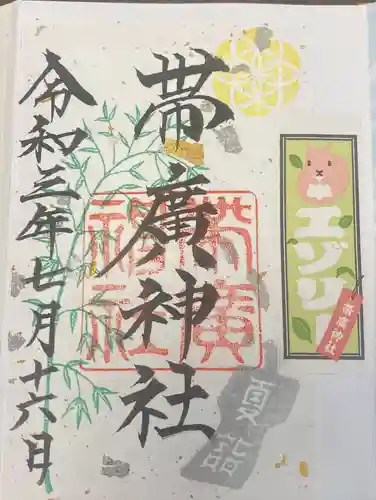 帯廣神社
令和三年七月十六日
帯廣神社
エゾリー
帯廣神社
夏詣